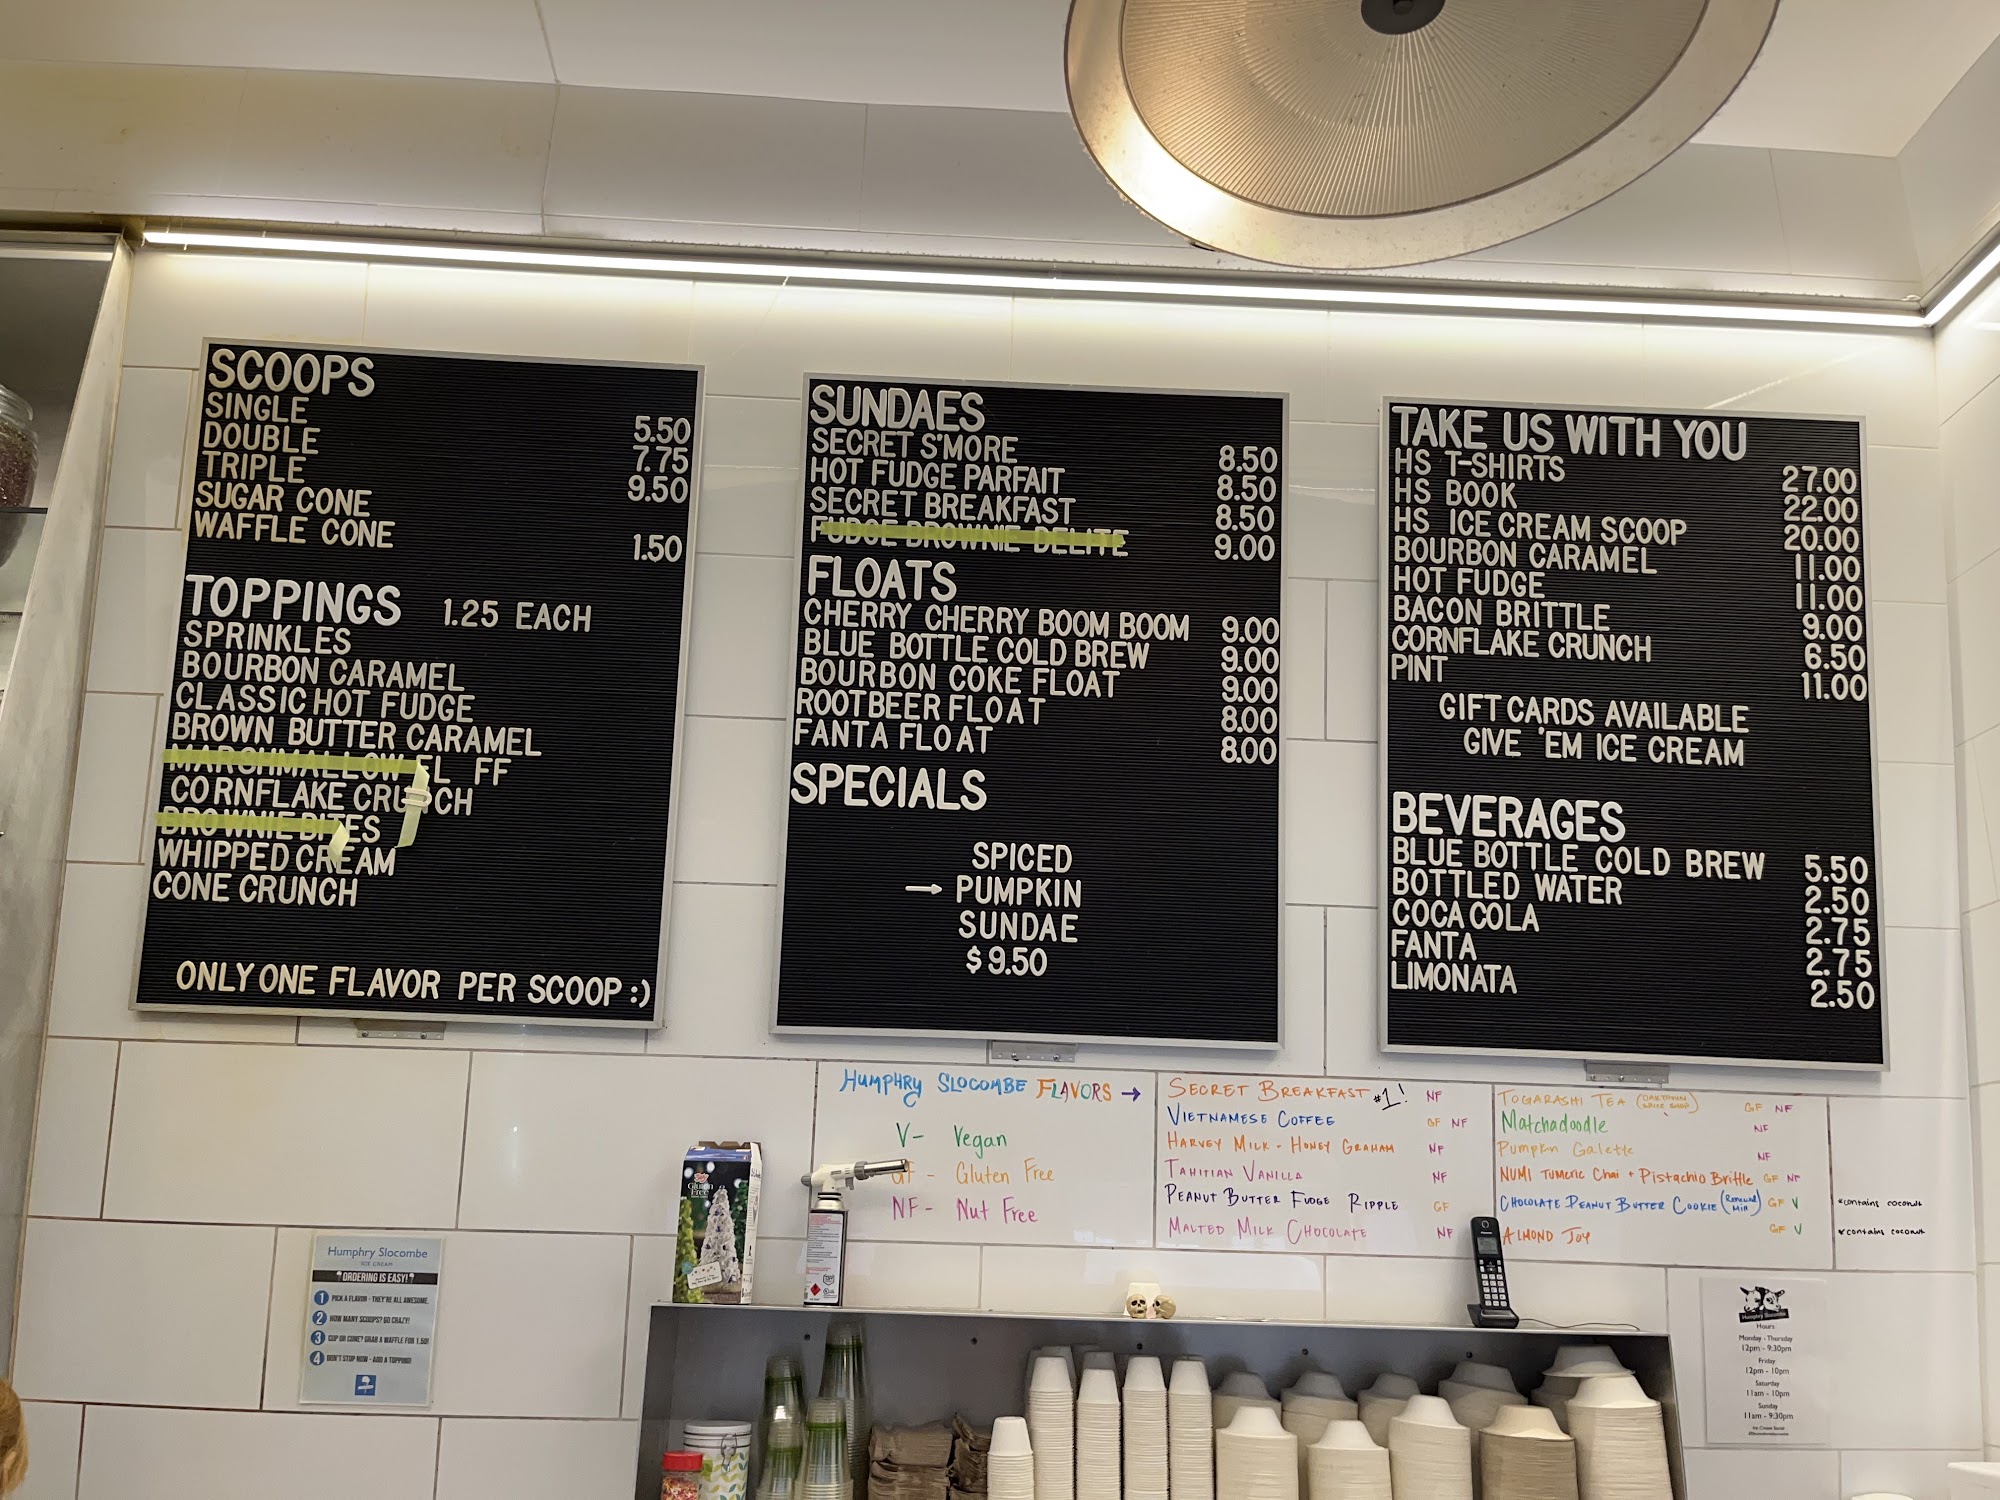 SCOOPS
SINGLE 5.50
DOUBLE 7.75
TRIPLE 9.50
SUGAR CONE
WAFFLE CONE 1.50
TOPPINGS 1.25 EACH
SPRINKLES
BOURBON CARAMEL
CLASSIC HOT FUDGE
BROWN BUTTER CARAMEL
MARSHMALLOW FL FF
CORNFLAKE CRUNCH
BROWNIE BITES
WHIPPED CREAM
CONE CRUNCH
ONLY ONE FLAVOR PER SCOOP :)
SUNDAES
SECRET S'MORE 8.50
HOT FUDGE PARFAIT 8.50
SECRET BREAKFAST 8.50
FUDGE BROWNIE DELITE 9.00
FLOATS
CHERRY CHERRY BOOM BOOM 9.00
BLUE BOTTLE COLD BREW 9.00
BOURBON COKE FLOAT 9.00
ROOTBEER FLOAT 8.00
FANTA FLOAT 8.00
SPECIALS
SPICED
→ PUMPKIN
SUNDAE
$ 9.50
TAKE US WITH YOU
HS T-SHIRTS 27.00
HS BOOK 22.00
HS ICE CREAM SCOOP 20.00
BOURBON CARAMEL 11.00
HOT FUDGE 11.00
BACON BRITTLE 9.00
CORNFLAKE CRUNCH 6.50
PINT 11.00
GIFT CARDS AVAILABLE
GIVE 'EM ICE CREAM
BEVERAGES
BLUE BOTTLE COLD BREW 5.50
BOTTLED WATER 2.50
COCA COLA 2.75
FANTA 2.75
LIMONATA 2.50
HUMPHRY SLOCOMBE FLAVORS →
V- Vegan
GF - Gluten Free
NF - Nut Free
SECRET BREAKFAST #1! NF
VIETNAMESE COFFEE GF NF
HARVEY MILK - HONEY GRAHAM NF
TAHITIAN VANILLA NF
PEANUT BUTTER FUDGE RIPPLE GF
MALTED MILK CHOCOLATE NF
TOGARASHI TEA GF NF
Matchadoodle NF
Pumpkin Galette NF
NUMI TUMERIC CHAI + PISTACHIO BRITTLE GF NF
CHOCOLATE PEANUT BUTTER COOKIE (Renewal Mill) GF V *contains coconut
ALMOND JOY GF V *contains coconut
Gluten
Free
Humphry Slocombe
ICE CREAM
ORDERING IS EASY!
1 PICK A FLAVOR - THEY'RE ALL AWESOME.
2 HOW MANY SCOOPS? GO CRAZY!
3 CUP OR CONE? GRAB A WAFFLE FOR 1.50!
4 DON'T STOP NOW - ADD A TOPPING!
Humphry Slocombe
Hours
Monday - Thursday
12pm - 9:30pm
Friday
12pm - 10pm
Saturday
11am - 10pm
Sunday
11am - 9:30pm